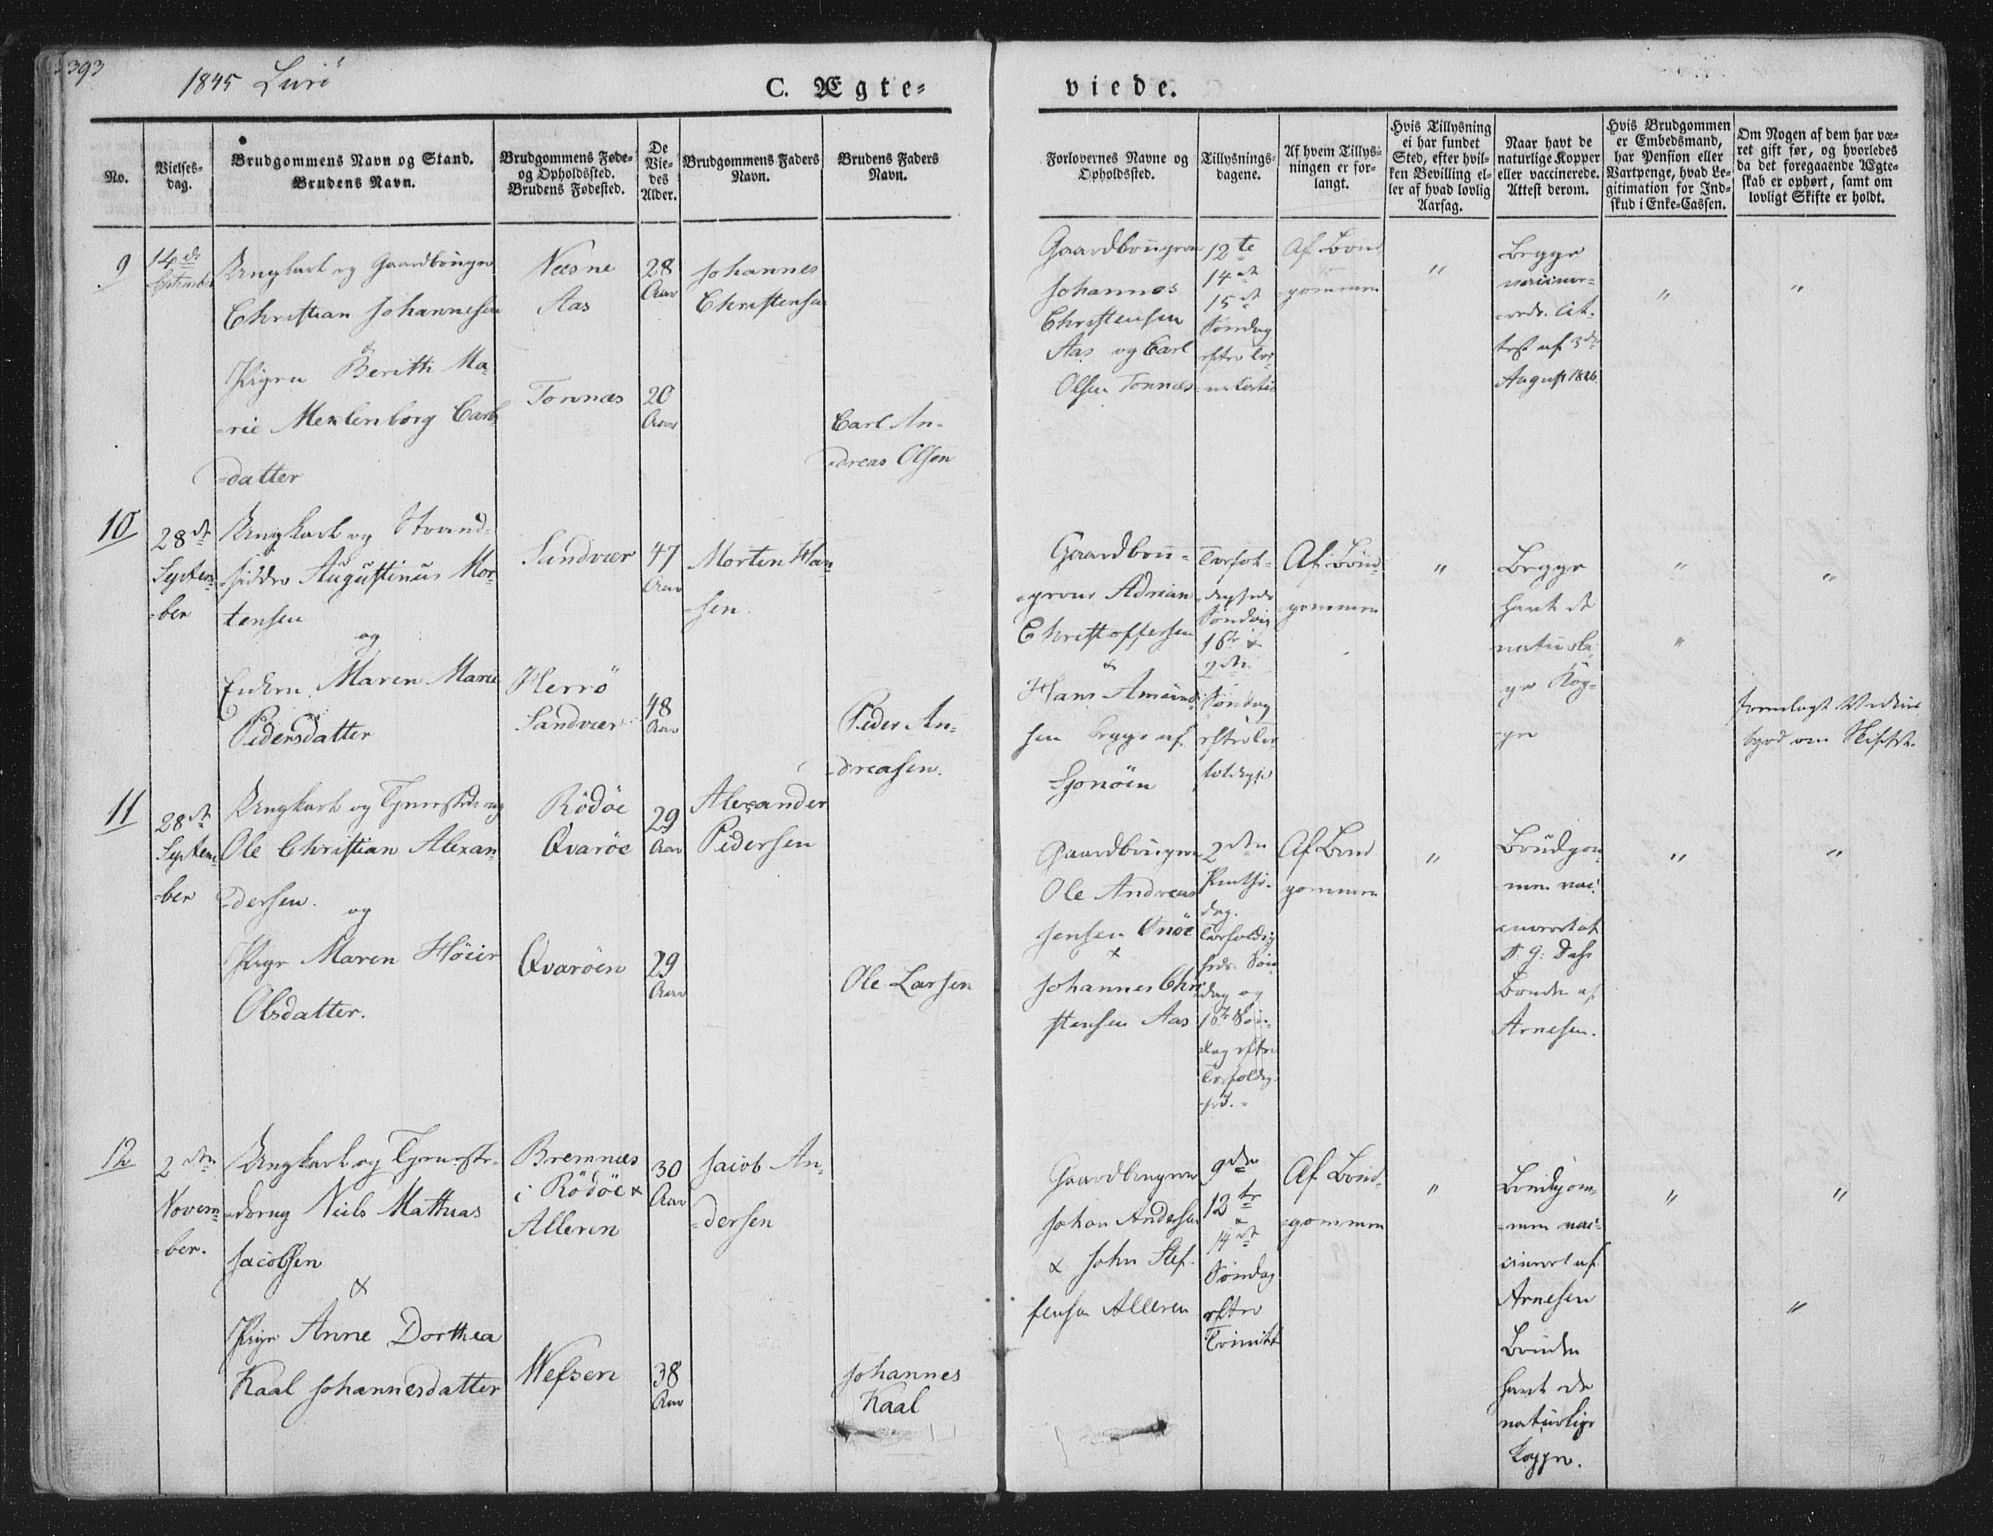 393
1845 Lurö
C. Ægte-
viede.
No.
Vielses-
dag.
Brudgommens Navn og Stand.
Brudens Navn.
Brudgommens Føde-
og Opholdssted.
Brudens Fødested.
De
Vie-
des
Alder.
Brudgommens Faders
Navn.
Brudens Faders
Navn.
Forlovernes Navne og
Opholdssted.
Tillysnings-
dagene.
Af hvem Tillys-
ningen er for-
langt.
Hvis Tillysning
ei har fundet
Sted, efter hvil-
ken Bevilling el-
ler af hvad lovlig
Aarsag.
Naar havt de
naturlige Kopper
eller vaccinerede.
Attest derom.
Hvis Brudgommen
er Embedsmand,
har Pension eller
Vartpenge, hvad Le-
gitimation for Ind-
skud i Enke-Cassen.
Om Nogen af dem har væ-
ret gift før, og hvorledes
da det foregaaende Ægte-
skab er ophørt, samt om
lovligt Skifte er holdt.
9
14de
September
Ungkarl og Gaardbruger
Christian Johannesen
&
Pigen Berith Ma-
rie Meklenborg Carls
-datter
Næsne
Aas
Tonnæs
28
Aar
20
Aar
Johannes
Christensen
Carl An-
-dreas Olsen
Gaardbrugerne
Johannes
Christensen
Aas og Carl
Olsen Tonnæs
12te
14de
15de
Søndag
efter Tri-
nitatis
Af Brud-
gommen
"
Begge
vaccine-
-rede. At-
test af 3de
August 1826.
"
"
10
28de
Septem-
-ber
Ungkarl og Strand-
-sidder Augustinus Mor-
tensen
og
Enken Maren Marie
Pedersdatter
Sandvær
Herrö
Sandvær
47
Aar
48
Aar
Morten Han-
-sen.
Peder An-
-dreasen.
Gaardbru-
-gerne Adrian
Christoffersen
&
Hans Amund-
sen begge af
Sjonöen
Søndag
1ste &
2den
Søndag
Af Brud-
gommen
"
Begge
havt de
naturli-
ge Kop-
-per
"
"
"
11
28de
Septem-
-ber
Ungkarl og Tjenestedreng
Ole Christian Alexan-
-dersen.
og
Pige Maren Höier
Olsdatter.
Rödöe
Qvaröe
Qvaröen
29
Aar
29
Aar
Alexander
Pedersen
Ole Larsen
Gaardbrugerne
Ole Andreas
Jensen Onöe
&
Johannes Chri-
stensen Aas
2den
Pintse-
dag.
Trefoldig-
heds Søn-
dag og
1ste Søn-
dag efter
Trefoldig-
-hed.
Af Brud-
gommen
"
Brudgom-
men vac-
cineret af
Bruden af
Arnesen.
"
"
12
2den
Novem-
-ber.
Ungkarl og Tjeneste-
-dreng Niels Mathias
Jacobsen
&
Pige Anne Dorthea
Kaal Johannesdatter
Bremnæs
i Rödöe &
Alleren
Wefsen
30
Aar
38
Aar
Jacob An-
-dersen
Johannes
Kaal
Gaardbrugerne
Johan Andersen
& John Stef-
fensen Alleren
9de
12te
&
14de
Søndag
efter
Trinitat
Af Brud-
-gommen
"
Brudgom-
-men vac-
cineret af
Arnesen
Bruden
havt de
naturlige
Kopper.
"
"
"